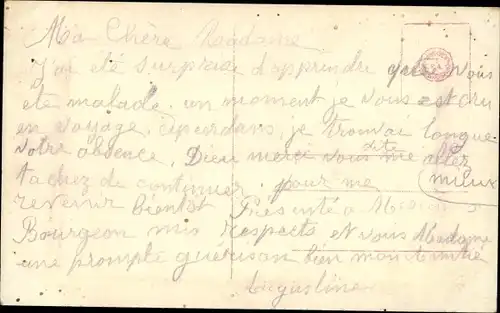 Ma Chère Madame
J'ai été surprise d'apprindu que vous
ete malade. un moment je vous est cru
en voyage, cependans, je trouvai longue
votre absence, Dieu merci vous dite me aller
mieux
tachez de continuer, pour me
revenir bientôt Présenté a
Bourgeon mis respects et vous Madame
une prompte guérison bien mon amitié